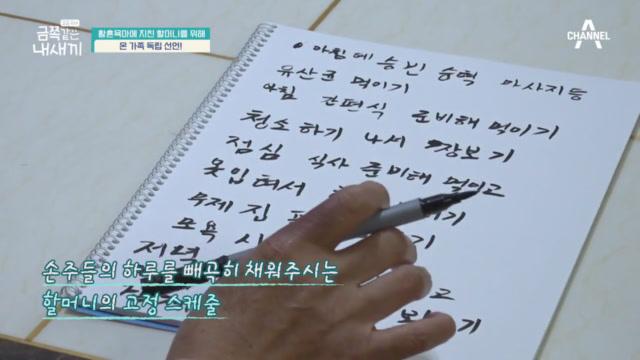 요즘 육아
금쪽같은
내새끼
황혼육아에 지친 할머니를 위해
온 가족 독립 선언!
CHANNEL A
• 아침에 승빈 승혁 마사지등
유산균 먹이기
아침 간편식 준비해 먹이기
청소하기 나서 장보기
점심 식사 준비해 먹이고
옷입혀서
기
목욕 시 기
저녁
고
기
손주들의 하루를 빼곡히 채워주시는
할머니의 고정 스케줄